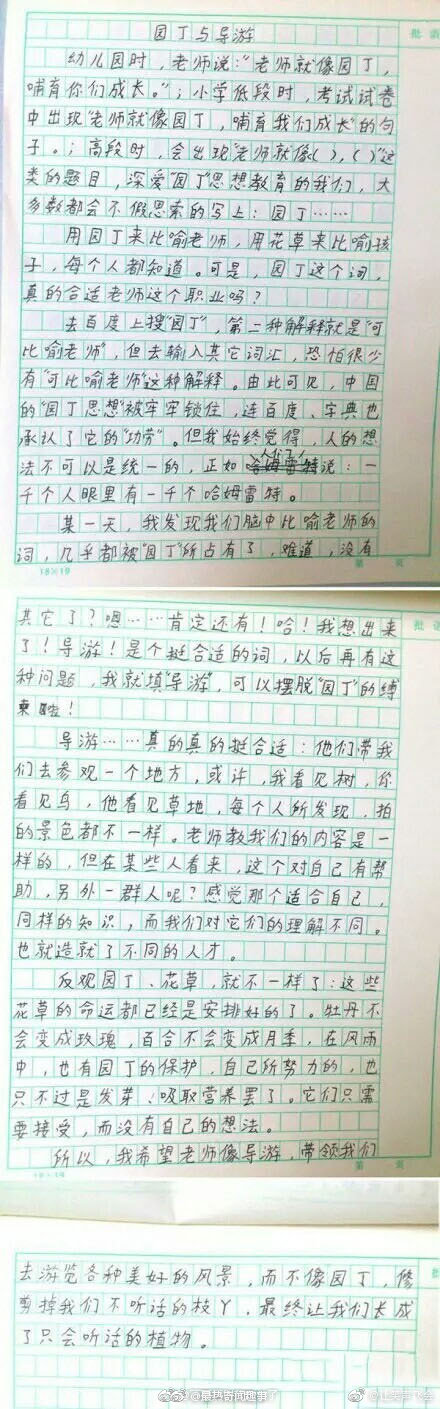 园丁与导游
批语
幼儿园时，老师说："老师就像园丁，
哺育你们成长。"；小学低段时，考试试卷
中出现"老师就像园丁，哺育我们成长"的句
子。；高段时，会出现"老师就像( )，( )"这
类的题目，深爱"园丁"思想教育的我们，大
多数都会不假思索的写上：园丁……
用园丁来比喻老师，用花草来比喻孩
子，每个人都知道。可是，园丁这个词，
真的合适老师这个职业吗？
去百度上搜"园丁"，第二种解释就是"可
比喻老师"，但去输入其它词汇，恐怕很少
有"可比喻老师"这种解释。由此可见，中国
的"园丁思想"被牢牢锁住，连百度、字典也
承认了它的"功劳"。但我始终觉得，人的想
法不可以是统一的，正如人们说：一
千个人眼里有一千个哈姆雷特。
某一天，我发现我们脑中比喻老师的
词，几乎都被"园丁"所占有了，难道，没有
18×19
第 页
其它了？嗯……肯定还有！哈！我想出来
了！导游！是个挺合适的词，以后再有这
种问题，我就填"导游"，可以摆脱"园丁"的缚
束啦！
导游……真的真的挺合适：他们带我
们去参观一个地方，或许，我看见树，你
看见鸟，他看见草地，每个人所发现，拍
的景色都不一样。老师教我们的内容是一
样的，但在某些人看来，这个对自己有帮
助，另外一群人呢？感觉那个适合自己，
同样的知识，而我们对它们的理解不同。
也就造就了不同的人才。
反观园丁、花草，就不一样了：这些
花草的命运都已经是安排好的了。牡丹不
会变成玫瑰，百合不会变成月季，在风雨
中，也有园丁的保护，自己所努力的，也
只不过是发芽、吸取营养罢了。它们只需
要接受，而没有自己的想法。
所以，我希望老师像导游，带领我们
第 页
去游览各种美好的风景，而不像园丁，修
剪掉我们不听话的枝丫，最终让我们长成
了只会听话的植物。